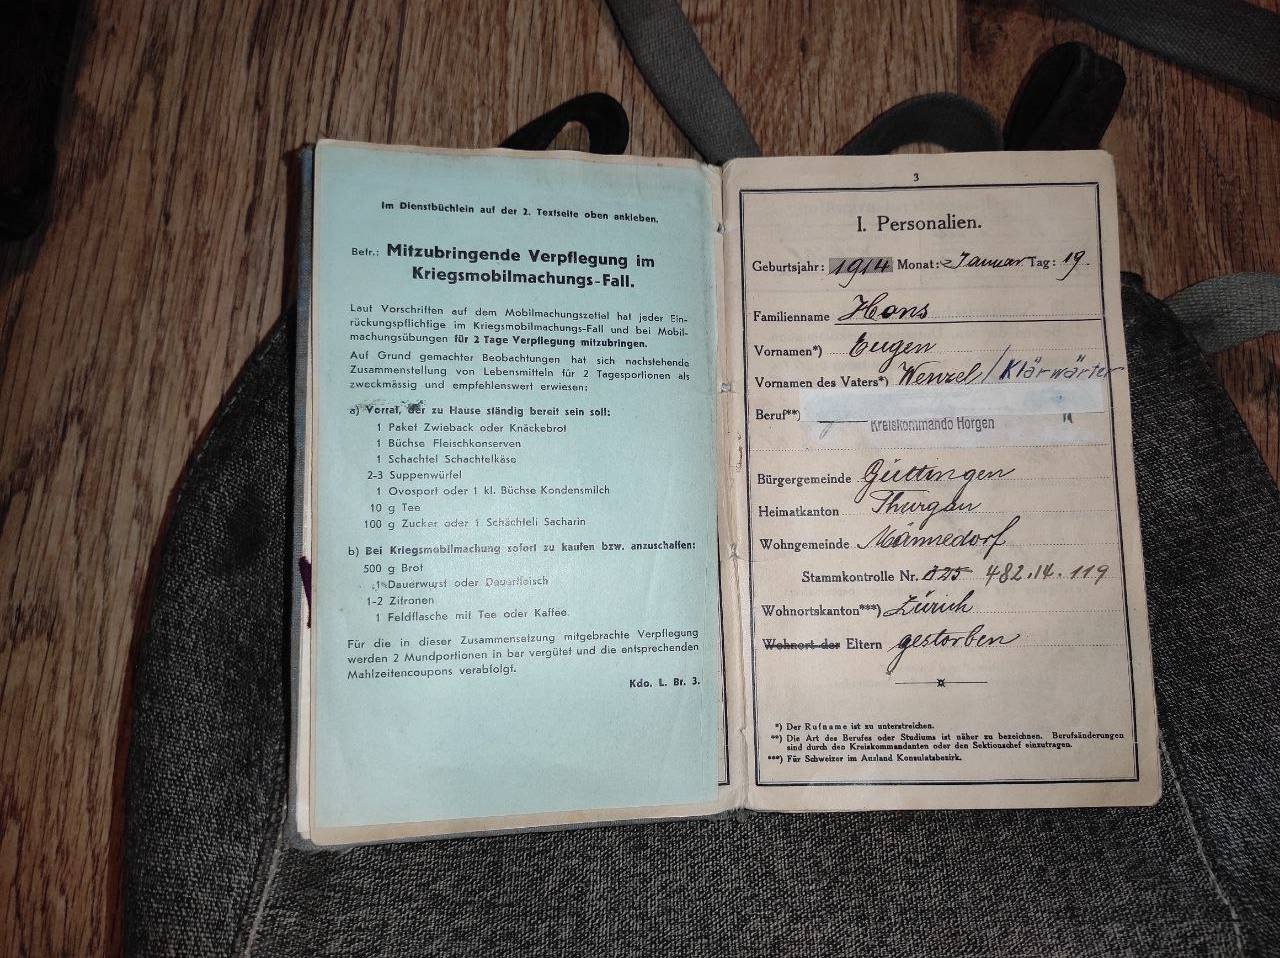 Im Dienstbüchlein auf der 2. Textseite oben ankleben.
Betr.: Mitzubringende Verpflegung im
Kriegsmobilmachungs-Fall.
Laut Vorschriften auf dem Mobilmachungszettel hat jeder Ein-
rückungspflichtige im Kriegsmobilmachungs-Fall und bei Mobil-
machungsübungen für 2 Tage Verpflegung mitzubringen.
Auf Grund gemachter Beobachtungen hat sich nachstehende
Zusammenstellung von Lebensmitteln für 2 Tagesportionen als
zweckmässig und empfehlenswert erwiesen:
a) Vorrat, der zu Hause ständig bereit sein soll:
1 Paket Zwieback oder Knäckebrot
1 Büchse Fleischkonserven
1 Schachtel Schachtelkäse
2-3 Suppenwürfel
1 Ovosport oder 1 kl. Büchse Kondensmilch
10 g Tee
100 g Zucker oder 1 Schächteli Sacharin
b) Bei Kriegsmobilmachung sofort zu kaufen bzw. anzuschaffen:
500 g Brot
1 Dauerwurst oder Dauerfleisch
1-2 Zitronen
1 Feldflasche mit Tee oder Kaffee.
Für die in dieser Zusammensetzung mitgebrachte Verpflegung
werden 2 Mundportionen in bar vergütet und die entsprechenden
Mahlzeitencoupons verabfolgt.
Kdo. L. Br. 3.
3
I. Personalien.
Geburtsjahr: 1914 Monat: Januar Tag: 19.
Familienname Hons
Vornamen*) Eugen
Vornamen des Vaters*) Wenzel / Klärwärter
Beruf**)
Kreiskommando Horgen
Bürgergemeinde Güttingen
Heimatkanton Thurgau
Wohngemeinde Männedorf
Stammkontrolle Nr. 325 482.14.119
Wohnortskanton***) Zürich
Wohnort der Eltern gestorben
*) Der Rufname ist zu unterstreichen.
**) Die Art des Berufes oder Studiums ist näher zu bezeichnen. Berufsänderungen
sind durch den Kreiskommandanten oder den Sektionschef einzutragen.
***) Für Schweizer im Ausland Konsulatsbezirk.